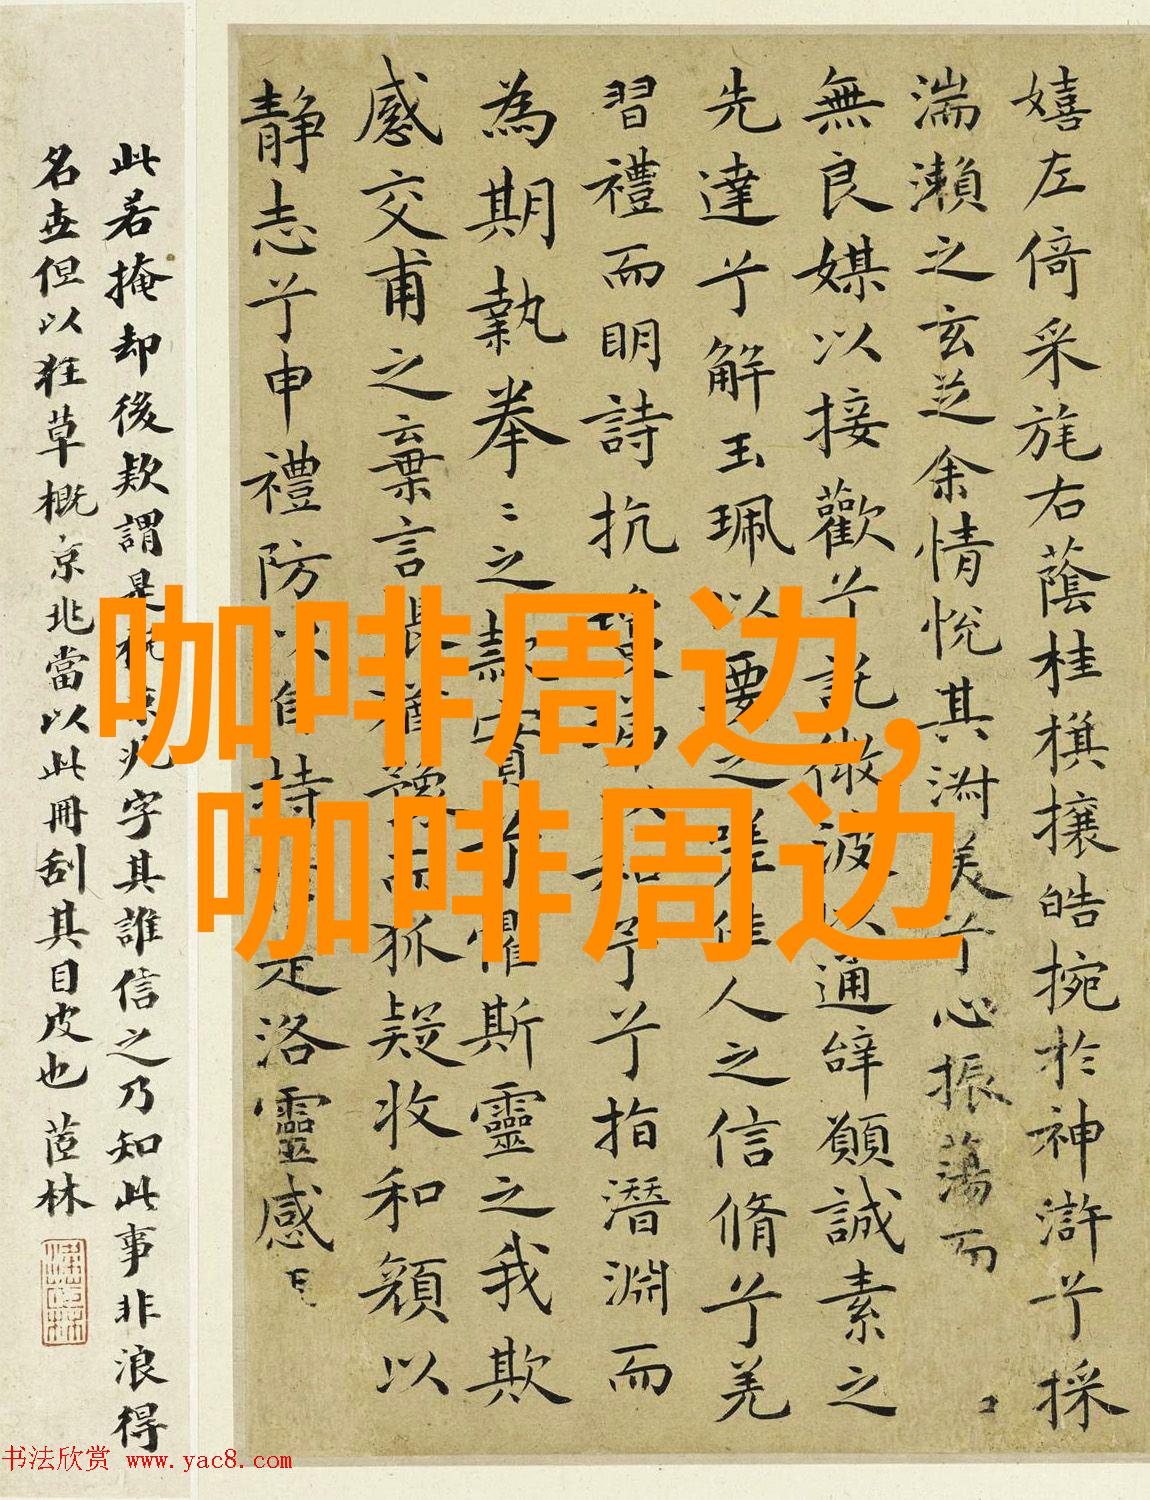 嬉左倚采旄右蔭桂旗攘皓捥於神滸兮採
湍瀨之玄芝余情悅其淑美兮心振蕩而
無良媒以接歡兮託微波以通辭願誠素之
先達兮解玉珮以要之嗟佳人之信脩兮羌
習禮而明詩抗瓊珶以和予兮指潛淵而
為期執拳〻之款實兮懼斯靈之我欺
感交甫之棄言悵猶豫而狐疑收和顏以
静志兮申禮防以自持於是洛靈感
此若掩却後款謂是杭京兆字其誰信之乃知此事非浪得
名世但以狂草概京兆當以此冊刮其目皮也 茝林
咖啡周边,
咖啡周边
书法欣赏 www.yac8.com